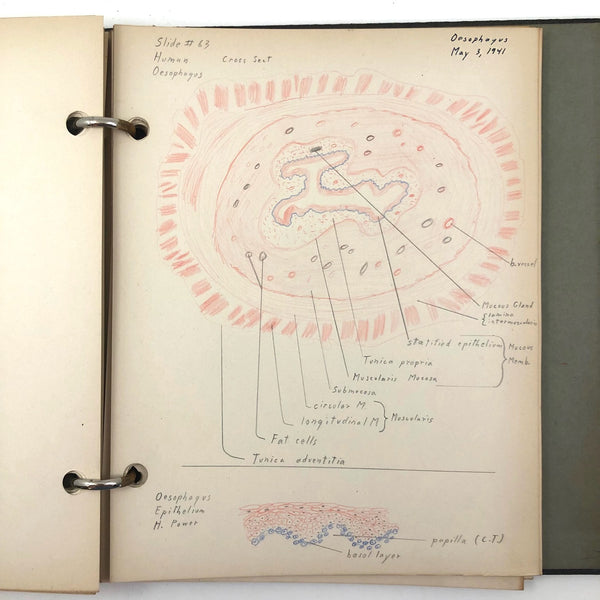 Slide # 63
Human Cross Sect
Oesophagus
Oesophagus
May 3, 1941
b.vessel
Mucous Gland
Stamina
intermuscularis
statified epithelium
Mucous
Memb.
Tunica propria
Muscularis Mucosa
Submucosa
circular M.
longitudinal M.
Muscularis
Fat cells
Tunica adventitia
Oesophagus
Epithelium
H. Power
papilla (C.T.)
basal layer